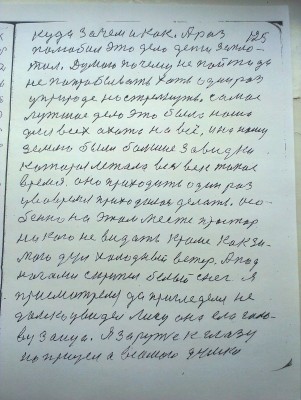 куда зачем и как. А раз 125
это дело деньги запло-
тил. Думаю почему не пойти да
не попробывать хоть один раз
у природе
лучшее дело это было наше
для всех охота на всё, и на нашу
землю было больше завидно
которая летала век вечное такое
время. оно приходить один раз
у своё время приходиться делать. осо-
бенно на этом месте простор
никого не видать кроме как зи-
мой дул холодный ветер. А под
ногами скрипел белый снег. Я
присмотрелся да пригляделся не
далеко увидел лису она ела голо-
ву зайца. Я за ружьё к глазу
на прицел а с самого думка